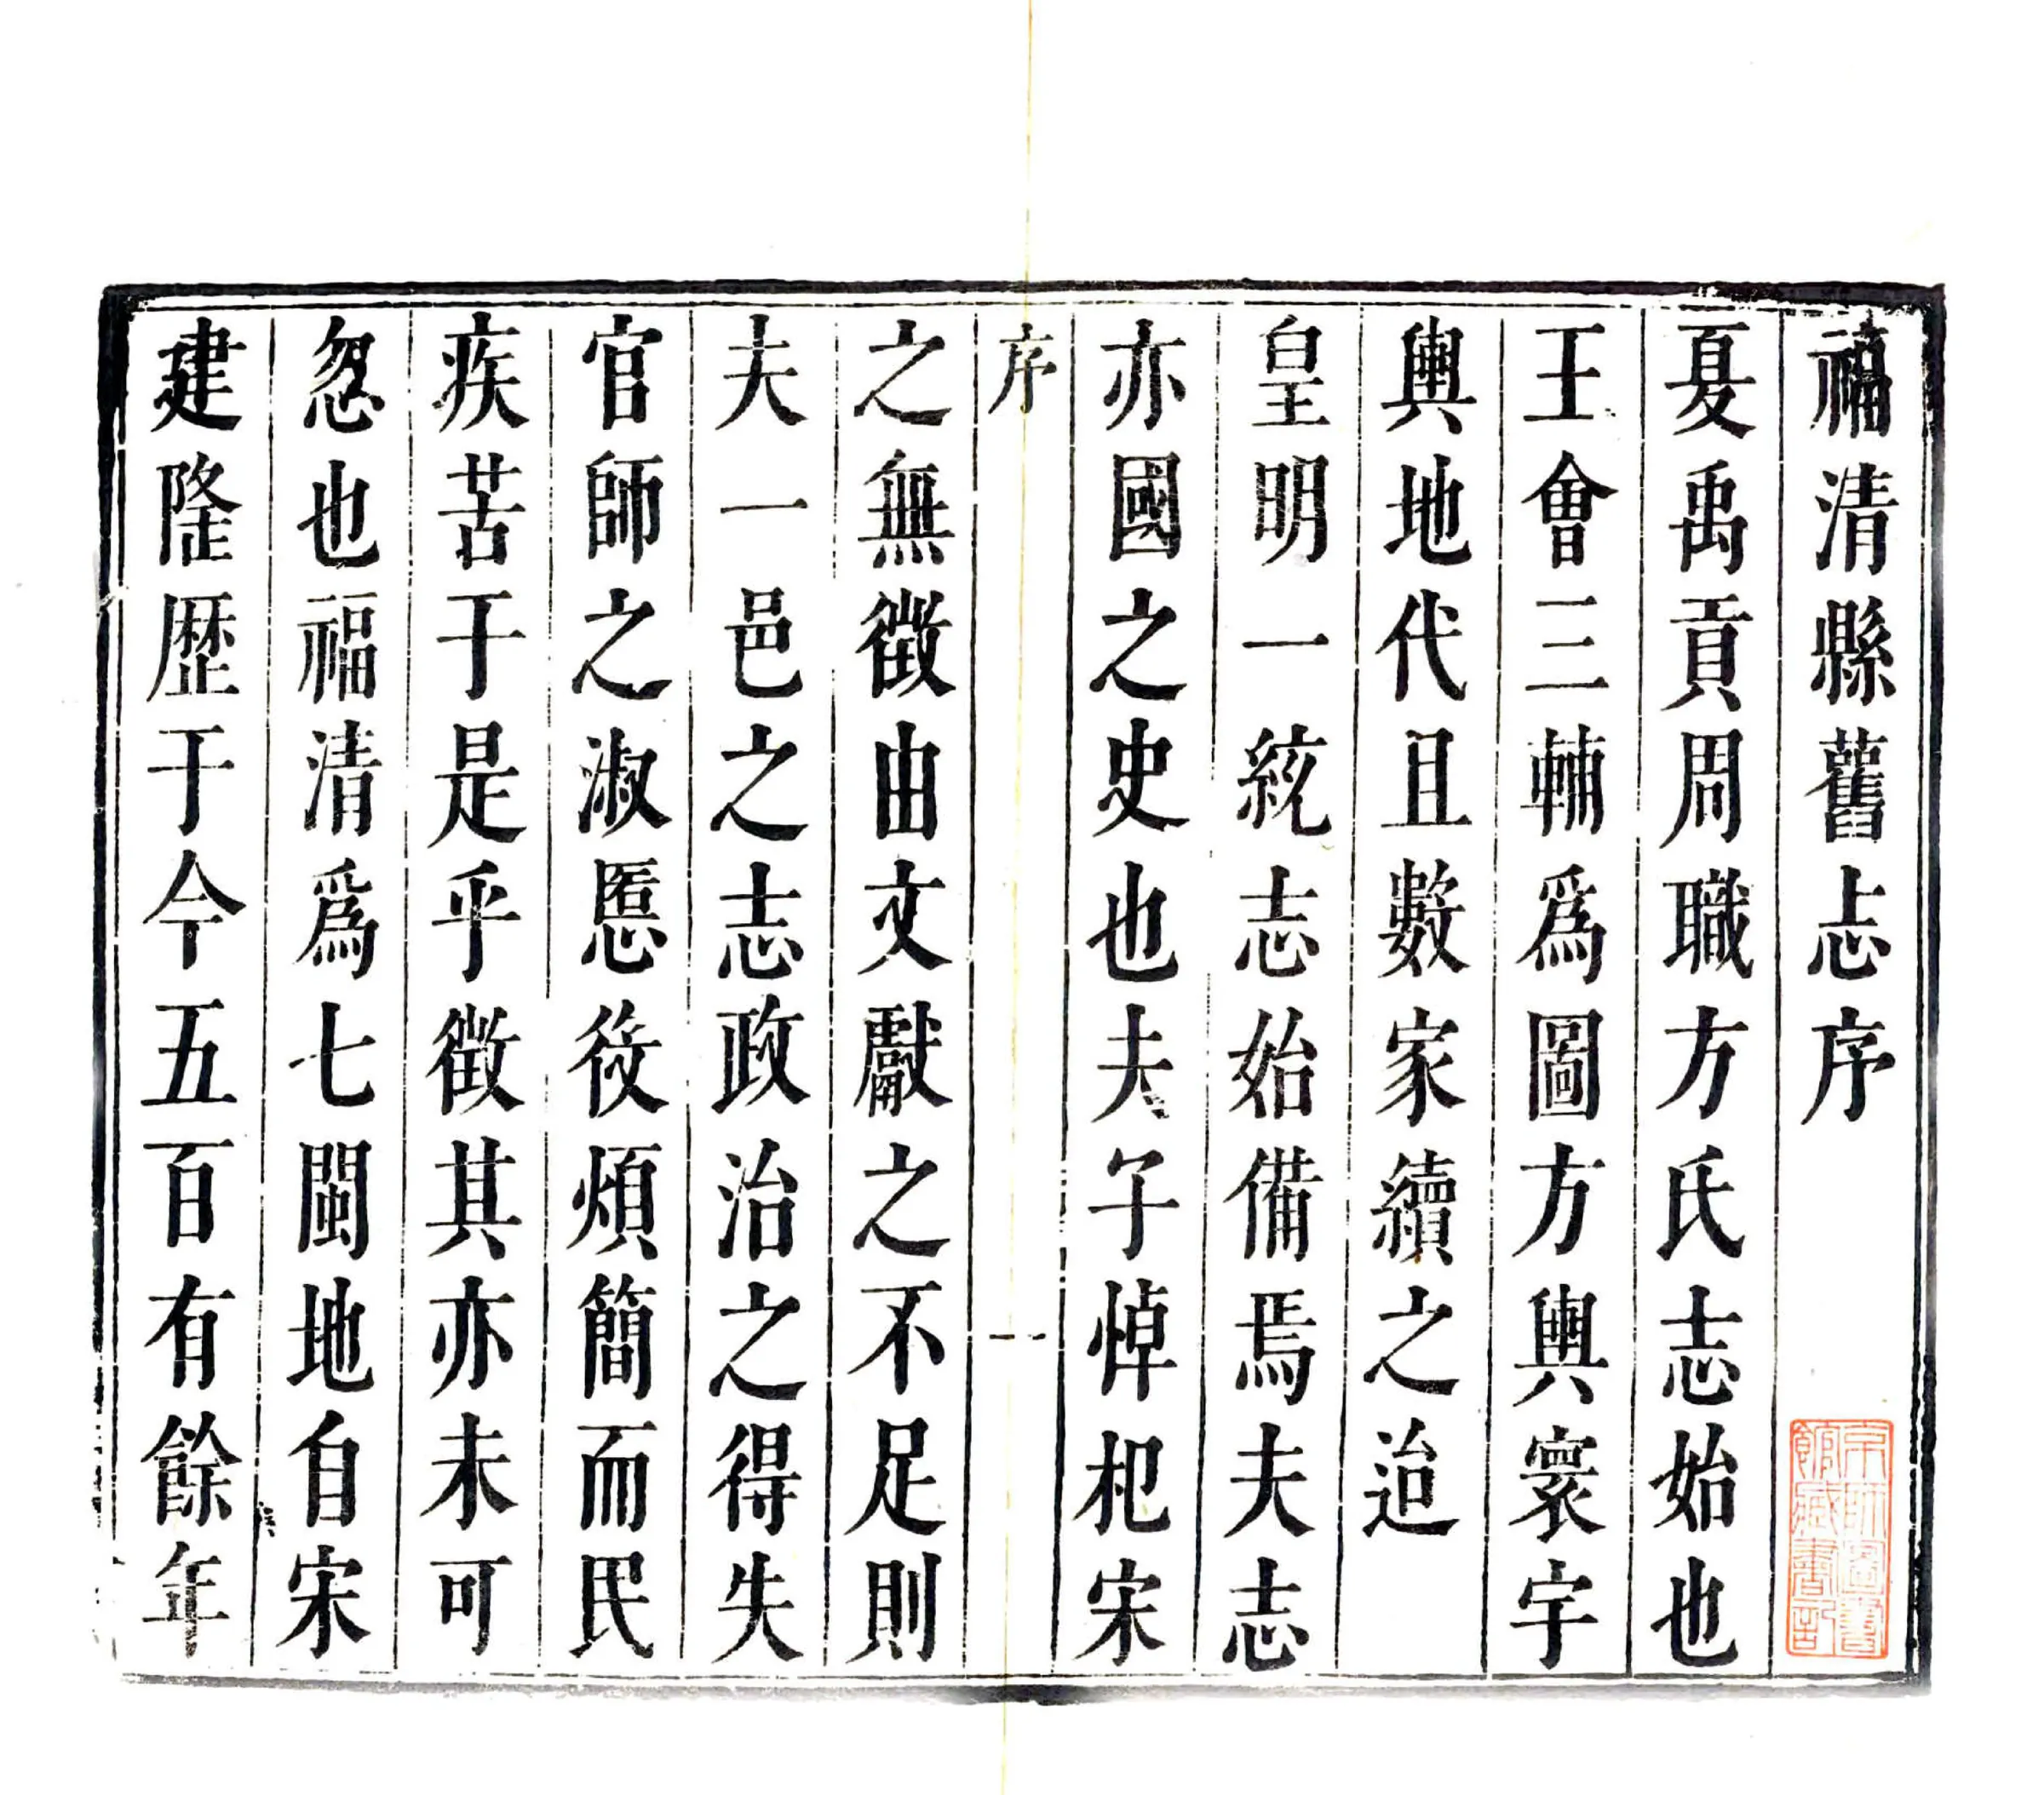 福清縣舊志序
夏禹貢周職方氏志始也
王會三輔爲圖方輿寰宇
輿地代且數家續之迨
皇明一統志始備焉夫志
亦國之史也夫子悼杞宋
序
一
之無徵由文獻之不足則
夫一邑之志政治之得失
官師之淑慝役煩簡而民
疾苦于是乎徵其亦未可
忽也福清爲七閩地自宋
建隆歷于今五百有餘年
京師圖書
館藏書記